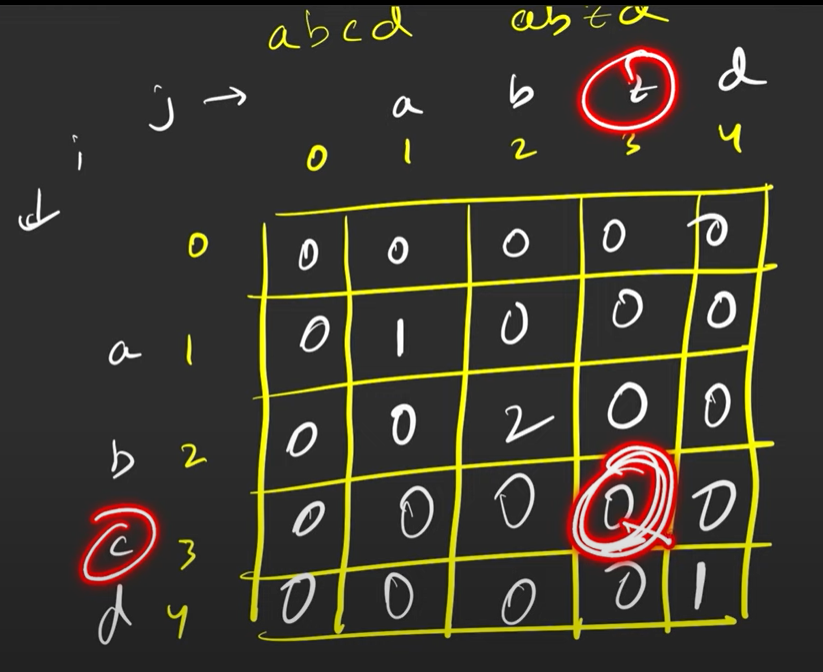 abcd abzd
j → a b z d
i 0 1 2 3 4
0 0 0 0 0 0
a 1 0 1 0 0 0
b 2 0 0 2 0 0
c 3 0 0 0 0 0
d 4 0 0 0 0 1